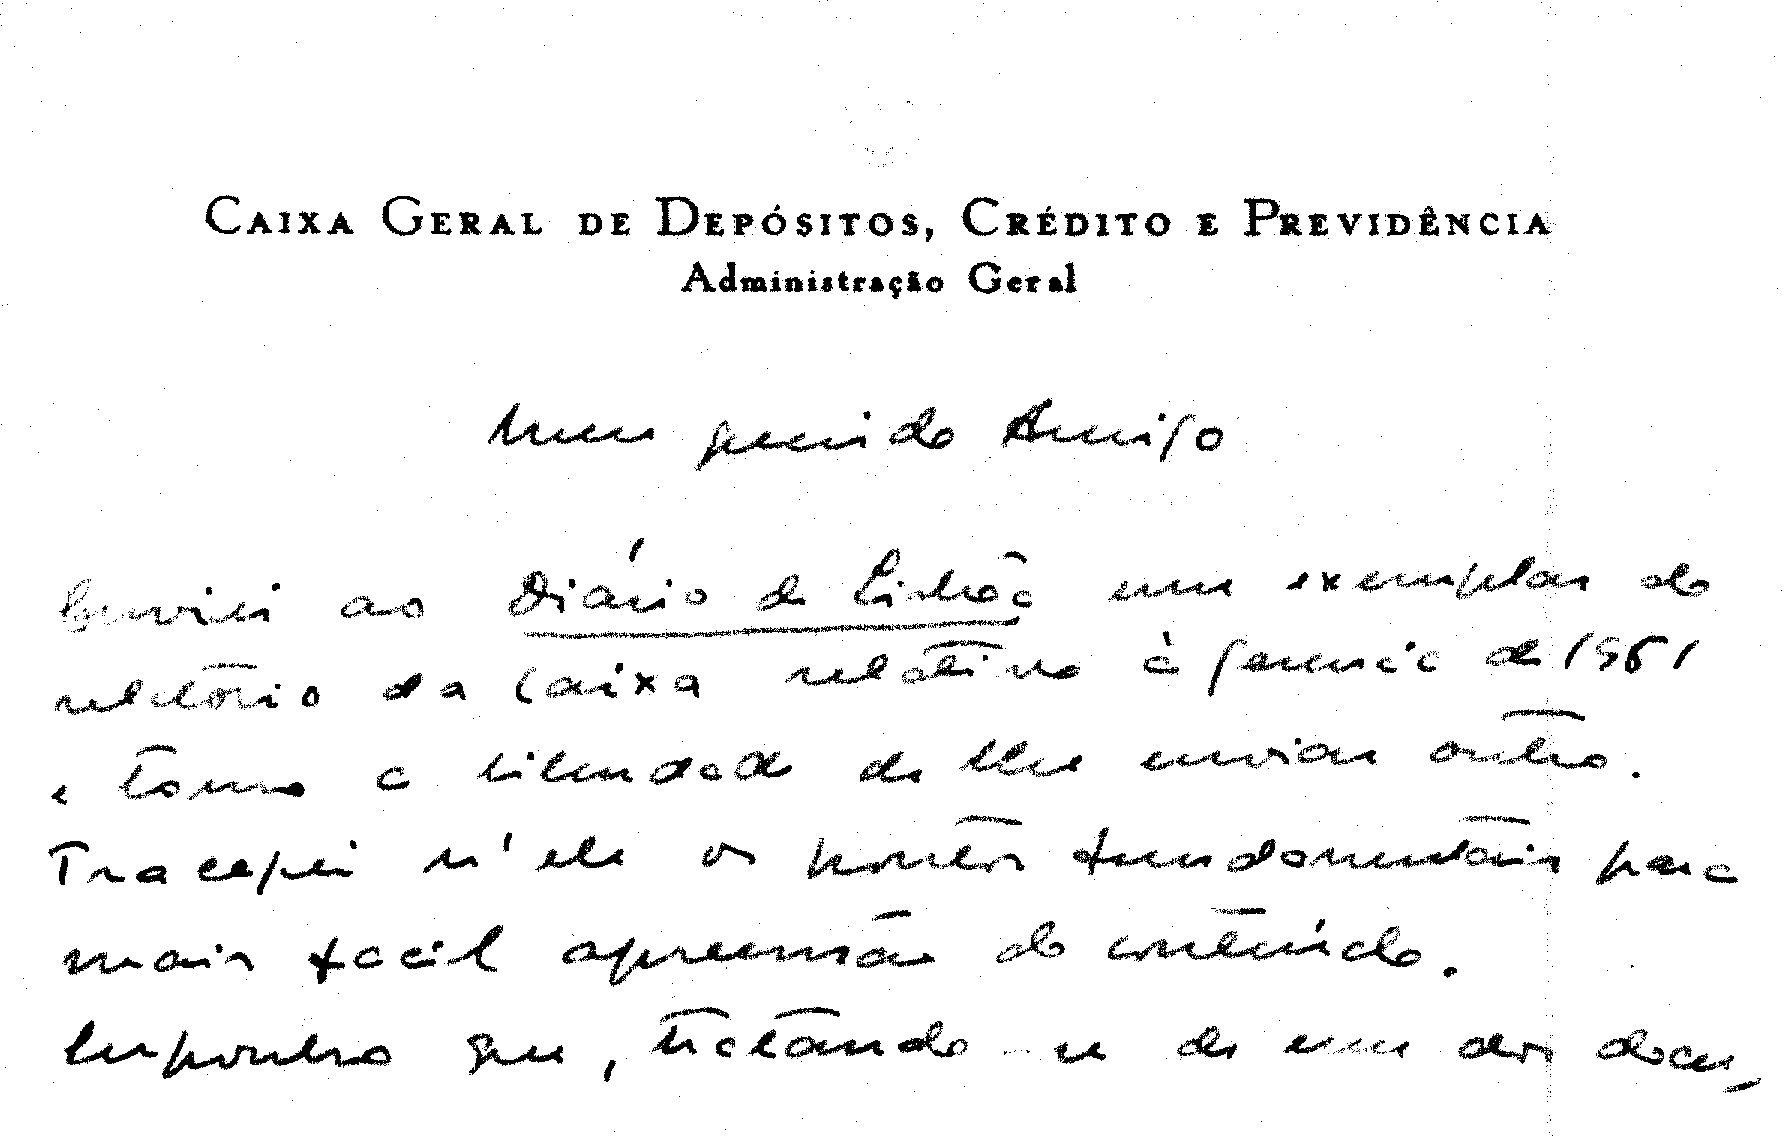 CAIXA GERAL DE DEPÓSITOS, CRÉDITO E PREVIDÊNCIA
Administração Geral
Meu querido Amigo
Enviei ao Diário de Lisboa um exemplar do
relatório da Caixa relativo à gerencia de 1961
e tomo a liberdade de lhe enviar outro.
Tracejei n'ele os pontos fundamentais para
mais facil apreensão do conteúdo.
Suponho que, tratando-se de um dos docu-